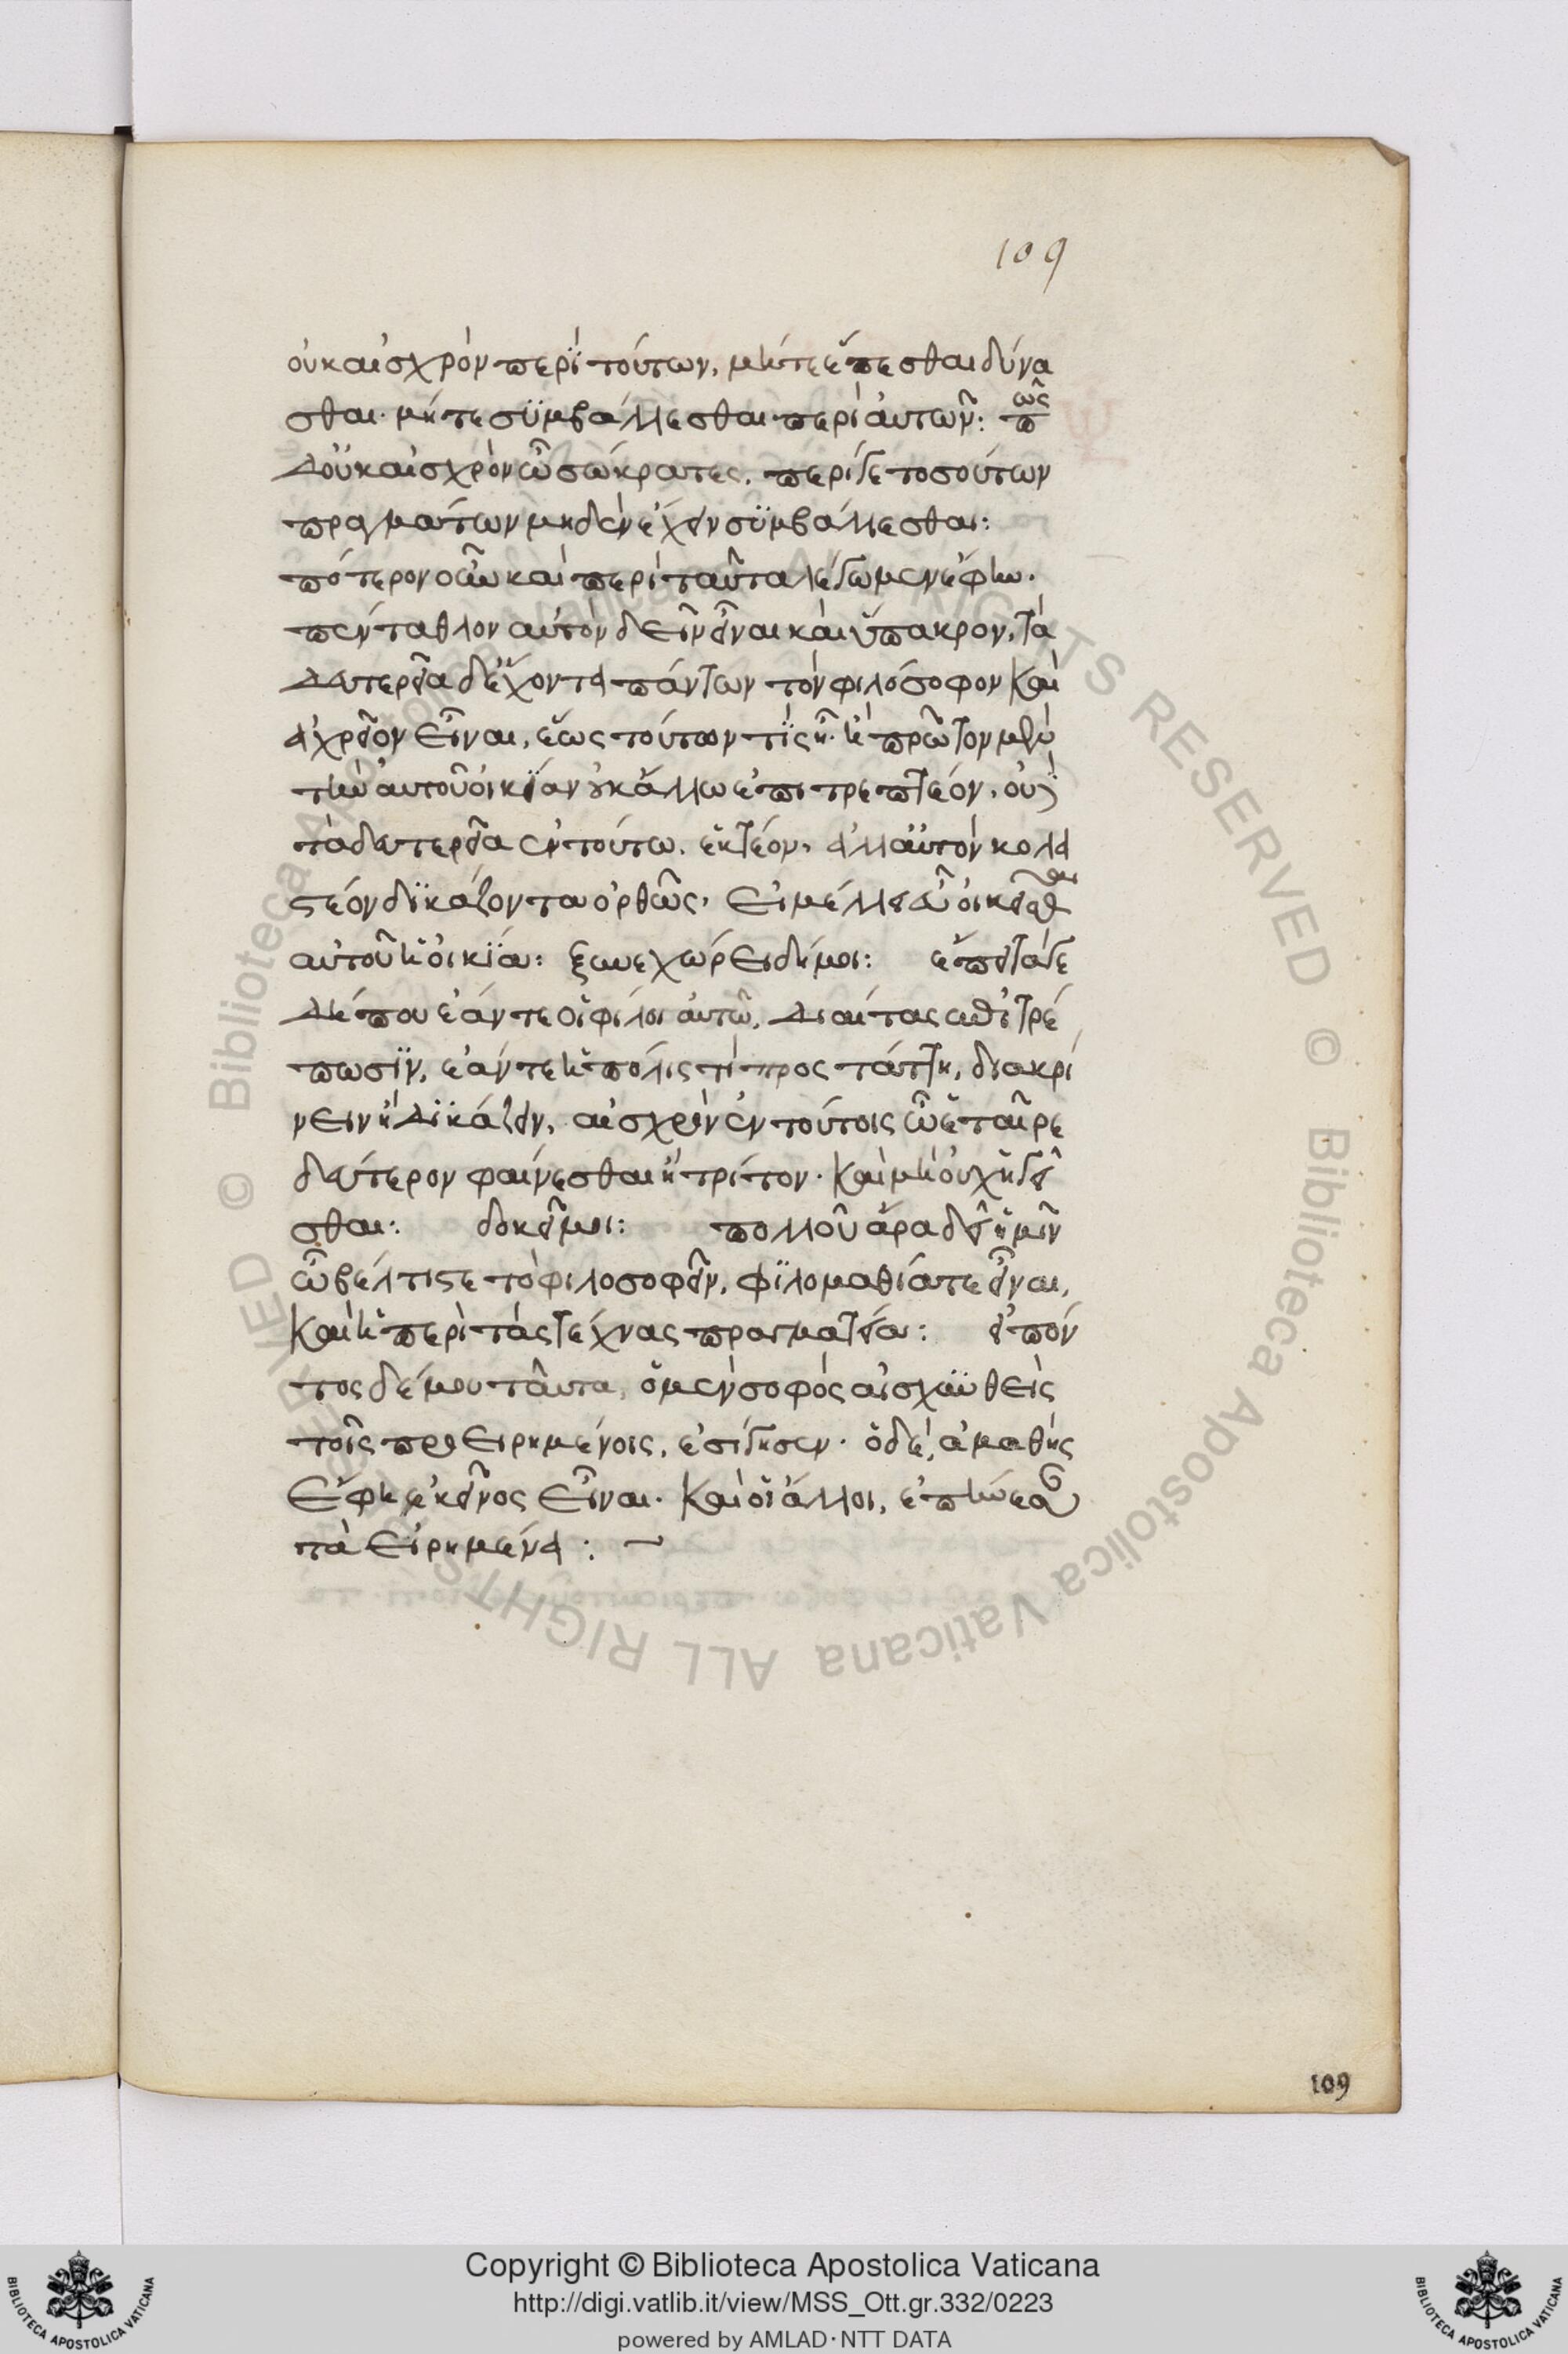 109
οὐκ αἰσχρὸν περὶ τούτων, μήτε ἕπεσθαι δύνα
σθαι· μήτε συμβάλλεσθαι περὶ αὐτῶν: πῶς
δ οὐκ αἰσχρὸν ὦ σώκρατες. περί γε τοσούτων
πραγμάτων μηδὲν ἔχειν συμβάλλεσθαι:
πότερον οὖν καὶ περὶ ταῦτα λέγωμεν ἔφην.
πένταθλον αὐτὸν δεῖν εἶναι καὶ ὕπακρον, τὰ
δευτερεῖα δ ἔχοντα πάντων τὸν φιλόσοφον καὶ
ἀχρεῖον εἶναι, ἕως τούτων τὶς ἦ· ἢ πρῶτον μὲν
τὴν αὐτοῦ οἰκίαν οὐκ ἄλλω ἐπιτρεπτέον, οὐδὲ
τὰ δευτερεῖα ἐν τούτω. ἑκτέον, ἀλλ αὐτὸν κολα
στέον δικάζοντα ὀρθῶς, εἰ μέλλει εὖ οἰκεῖσθαι
αὐτοῦ ἡ οἰκία: ξυνεχώρει δή μοι: ἔπειτά γε
δήπου ἐάν τε οἱ φίλοι αὐτῶ, διαίτας ἐπιτρέ
πωσιν, ἐάν τε ἡ πόλις τὶ προστάττη, διακρί
νειν ἢ δικάζειν, αἰσχρὸν ἐν τούτοις ὦ ἑταῖρε
δεύτερον φαίνεσθαι ἢ τρίτον· καὶ μὴ οὐχ ἡγεῖ
σθαι: δοκεῖ μοι: πολλοῦ ἄρα δεῖ ἡμῖν
ὦ βέλτιστε τὸ φιλοσοφεῖν, φιλομαθία τε εἶναι,
καὶ ἡ περὶ τὰς τέχνας πραγματεία: εἰπόν
τος δέ μου ταῦτα, ὁ μὲν σοφὸς αἰσχυνθεὶς
τοῖς προειρημένοις, ἐσίγησεν· ὁ δὲ, ἀμαθὴς
ἔφη ἐκεῖνος εἶναι· καὶ οἱ ἄλλοι, ἐπήνεσαν
τὰ εἰρημένα: ~
109
© Biblioteca Apostolica Vaticana ALL RIGHTS RESERVED © Biblioteca Apostolica Vaticana ALL RIGHTS RESERVED
Copyright © Biblioteca Apostolica Vaticana
http://digi.vatlib.it/view/MSS_Ott.gr.332/0223
powered by AMLAD·NTT DATA
BIBLIOTECA APOSTOLICA VATICANA
BIBLIOTECA APOSTOLICA VATICANA